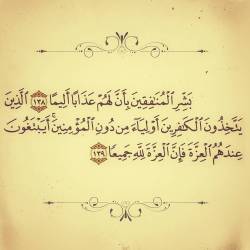 بَشِّرِ الْمُنَافِقِينَ بِأَنَّ لَهُمْ عَذَابًا أَلِيمًا ١٣٨ الَّذِينَ
يَتَّخِذُونَ الْكَافِرِينَ أَوْلِيَاءَ مِن دُونِ الْمُؤْمِنِينَ ۚ أَيَبْتَغُونَ
عِندَهُمُ الْعِزَّةَ فَإِنَّ الْعِزَّةَ لِلَّهِ جَمِيعًا ١٣٩